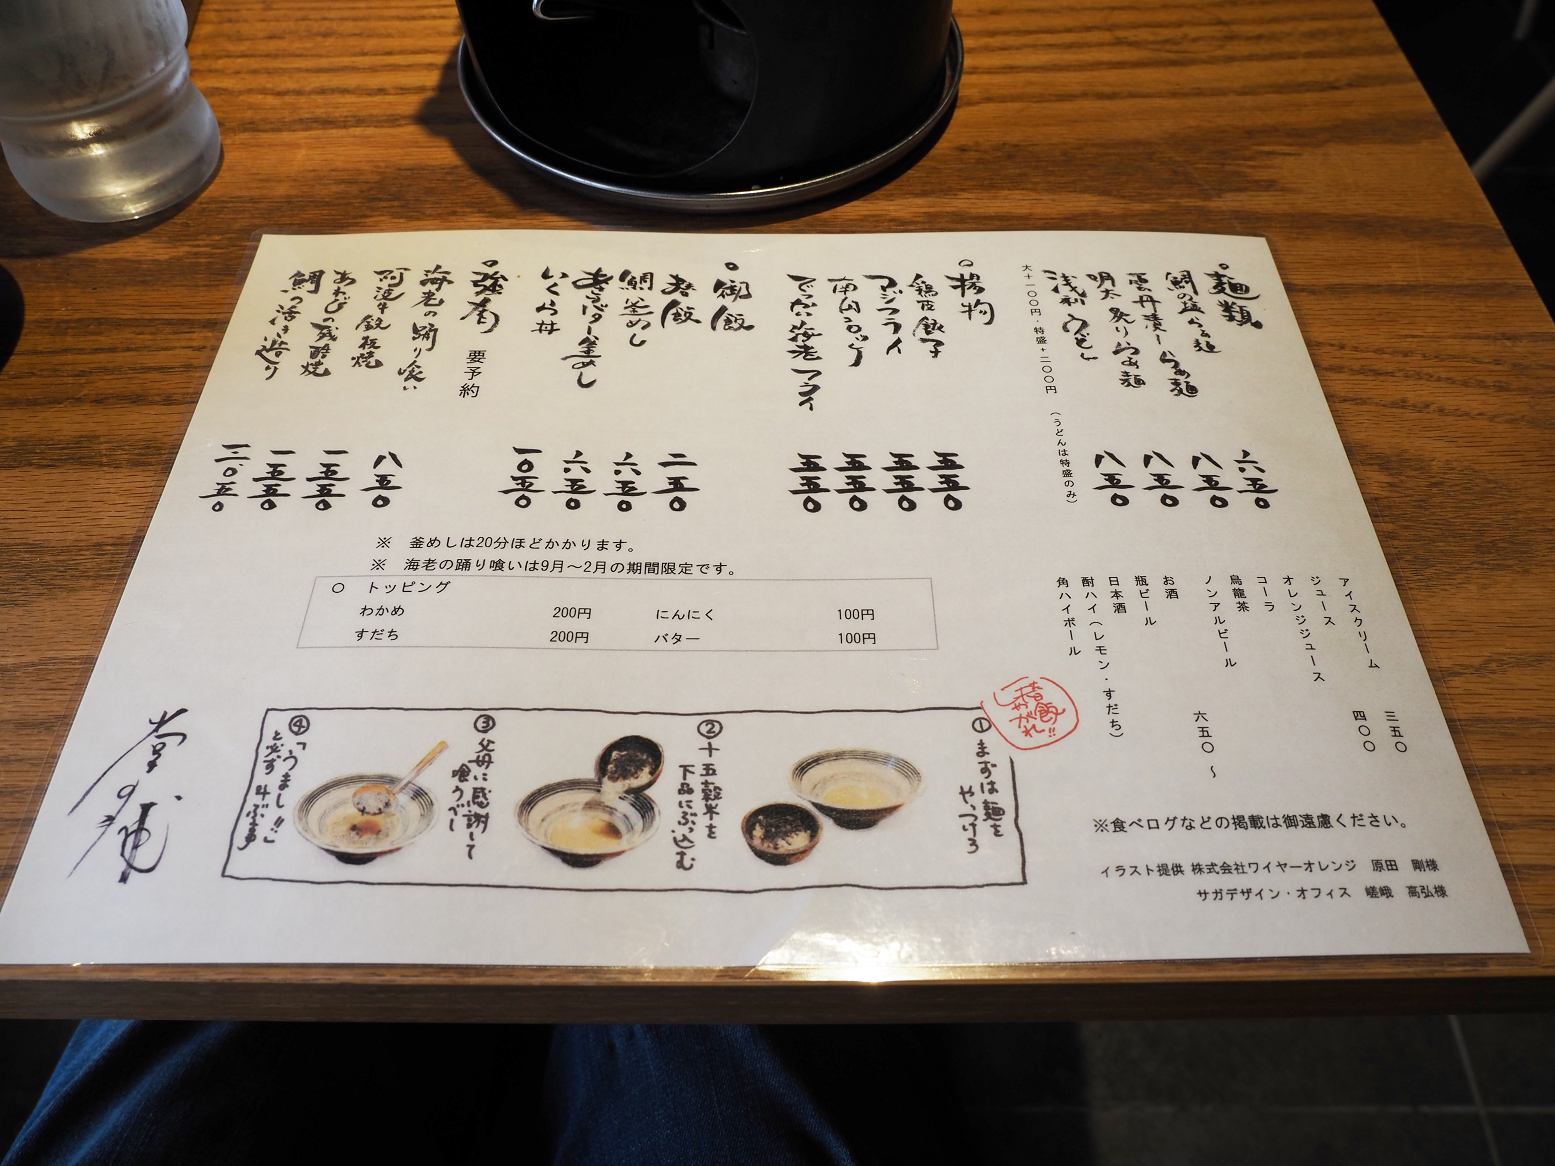 麺類
鯛の塩らぁ麺
六五〇
雲丹漬しらぁ麺
八五〇
明太炙りらぁ麺
八五〇
浅利うどん
八五〇
大+一〇〇円・特盛+二〇〇円 (うどんは特盛のみ)
揚物
鶏皮餃子
五五〇
アジフライ
五五〇
五五〇
でっかい海老フライ
五五〇
御飯
二五〇
鯛釜めし
六五〇
六五〇
いくら丼
一〇五〇
強肴 要予約
海老の踊り喰い
八五〇
阿波牛鉄板焼
一五五〇
あわびの残酷焼
一五五〇
鯛の活き造り
※ 釜めしは20分ほどかかります。
※ 海老の踊り喰いは9月～2月の期間限定です。
○ トッピング
わかめ 200円 にんにく 100円
すだち 200円 バター 100円
アイスクリーム 三五〇
ジュース 四〇〇
オレンジジュース
コーラ
烏龍茶
ノンアルビール
お酒 六五〇～
瓶ビール
日本酒
酎ハイ(レモン・すだち)
角ハイボール
①まずは麺をやっつけろ
②十五穀米を下品にぶっ込む
③父母に感謝して喰うべし
④「うまし!!」と必ず叫ぶ事
※食べログなどの掲載は御遠慮ください。
イラスト提供 株式会社ワイヤーオレンジ 原田 剛様
サガデザイン・オフィス 嵯峨 高弘様